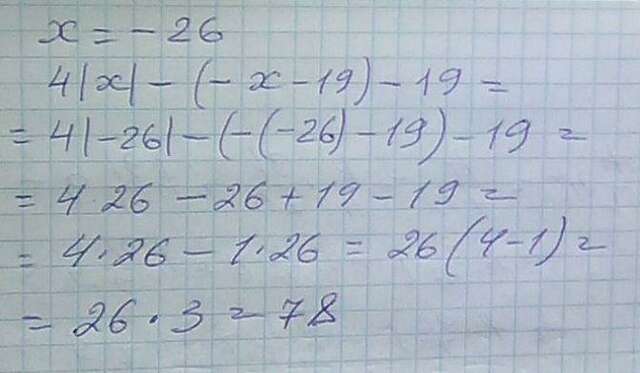 x = - 26
4|x| - (- x - 19) - 19 =
= 4|-26| - (-(-26) - 19) - 19 =
= 4 · 26 - 26 + 19 - 19 =
= 4 · 26 - 1 · 26 = 26 (4 - 1) =
= 26 · 3 = 78